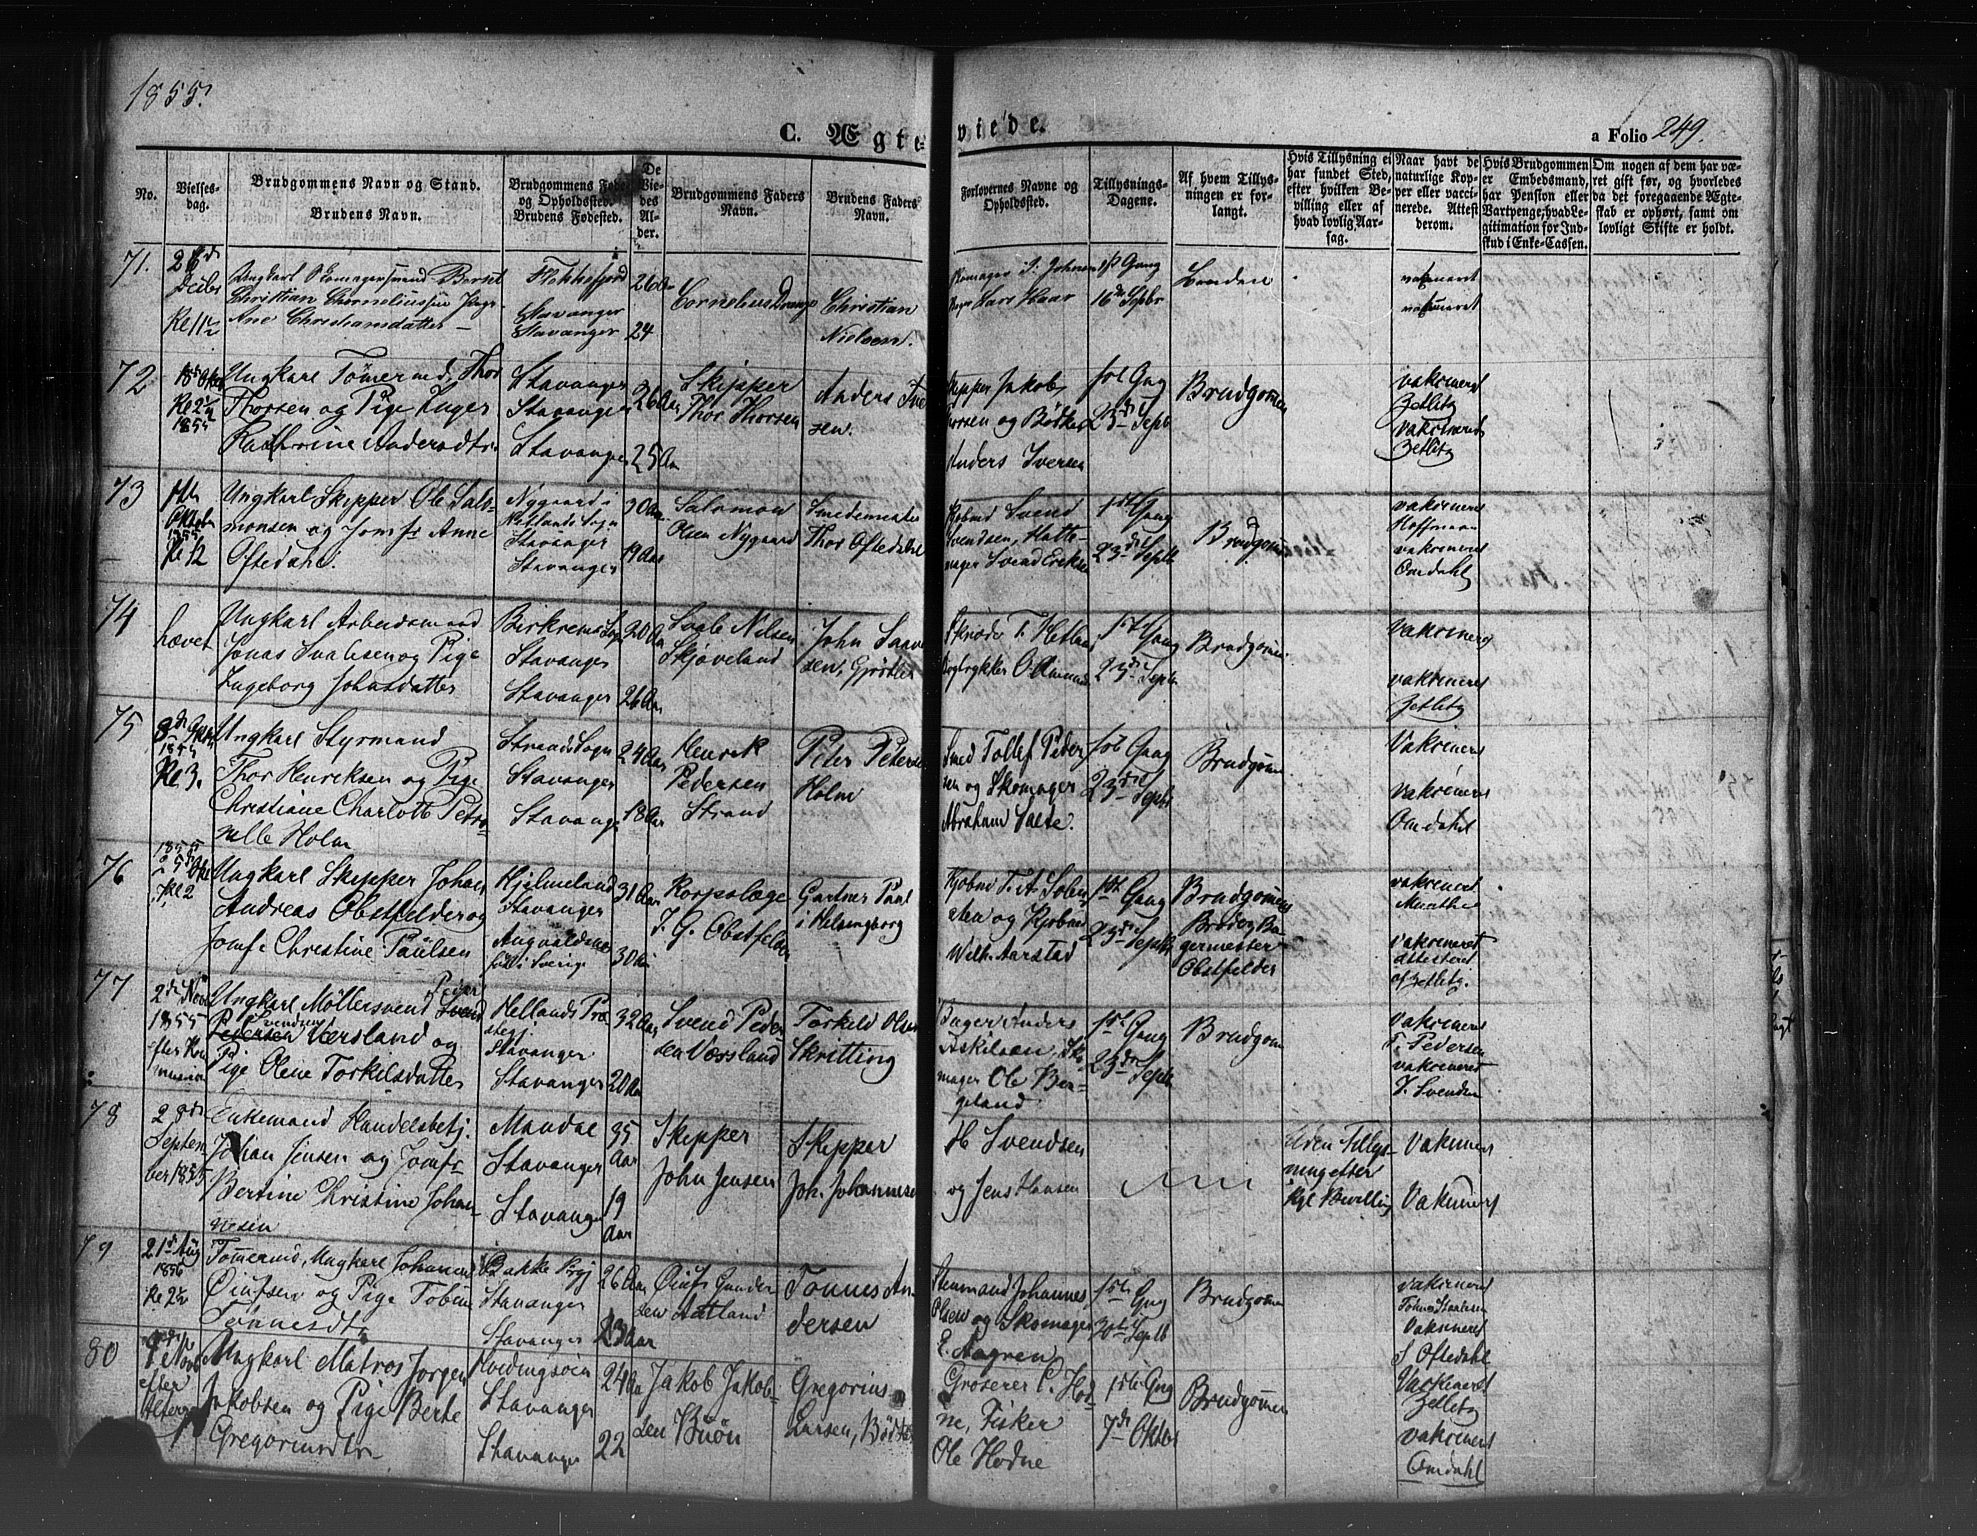 1855.
C. Ægte-
viede.
a Folio 249.
No.
Vielses-
dag.
Brudgommens Navn og Stand.
Brudens Navn.
Brudgommens Føde-
og Opholdssted.
Brudens Fødested.
De
Vie-
des
Al-
der.
Brudgommens Faders
Navn.
Brudens Faders
Navn.
Forlovernes Navne og
Opholdssted.
Tillysnings-
Dagene.
Af hvem Tillys-
ningen er for-
langt.
Hvis Tillysning ei
har fundet Sted,
efter hvilken Be-
villing eller af
hvad lovlig Aar-
sag.
Naar havt de
naturlige Kop-
per eller vacci-
nerede. Attest
derom.
Hvis Brudgommen
er Embedsmand,
har Pension eller
Vartpenge; hvad Le-
gitimation for Ind-
skud i Enke-Cassen.
Om nogen af dem har væ-
ret gift før, og hvorledes
da det foregaaende Ægte-
skab er ophørt, samt om
lovligt Skifte er holdt.
71.
Christian Corneliussen
Ane Christiansdatter
Stavanger
Stavanger
26 Aar
24
Cornelius Drange
Christian
Nielsen.
Lars Haar
1ste Gang
16de Septbr
72
18de Okt
Kl 2½
1855
Ungkarl Tömermd, Thor
Thorsen og Pige Inger
Kathrine Andersdtr.
Stavanger
Stavanger
Stavanger
26 Aar
25 Aar
Skipper
Thor Thorsen
Anders Iver
sen.
Skipper Jakob
Thorsen og Bödker
Anders Iversen
1ste Gang
23de Septb
Brudgomen
vaksineret
Zetlitz
vaksineret
Zetlitz
73
Oktober
1855
Kl 12
Ungkarl Skipper Ole Salo-
monsen og Jomfr Anne
Oftedahl.
Nygaard i
Hetlands Sogn
Stavanger
Stavanger
30 Aar
19 Aar
Salomon
Olsen Nygaard
Smedemester
Thor Oftedahl
Kjöbmd Svend
Svendsen, Hatte-
mager Svend Eriksen
1ste Gang
23de Septb
Brudgomen
vaksineret
Hoffmann
vaksineret
Omdahl
74
hævet
Ungkarl Arbeidsmand
Jonas Svalesen og Pige
Ingeborg Johnsdatter
Birkrems Sogn
Stavanger
Stavanger
20 Aar
26 Aar
Svale Nilsen
Skjæveland
John Laur
sen, Gjørtler
T. Hetland
Bogtrykker O Asmund
1ste Gang
23de Septb
Brudgomen
vaksineret
vaksineret
Zetlitz
75
8de Oktb
1855
Kl 3.
Ungkarl Styrmand
Thor Henriksen og Pige
Christiane Charlotte Petro-
nelle Holm
Strands Sogn
Stavanger
Stavanger
24 Aar
18 Aar
Henrik
Pedersen
Strand
Peter Petersen
Holm
Smed Tollef Peder
sen og Skomager
Abraham Salte.
1ste Gang
23de Septb
Brudgomen
Vaksineret
vaksineret
Omdahl
76
1855
Kl 2
Ungkarl Skipper Johan
Andreas Obstfelder og
Jomfr Christine Paulsen
Hjelmeland
Stavanger
født i Sverige
31 Aar
30 Aar
Korpslæge
J. G. Obstfelder
Gartner Paul
i Helsingborg
og Kjöbmd
Wilh. Aarstad
1ste Gang
23de Septb
Brudgomens
Broder Ba-
germester
Obstfelder
vaksineret
Munthe
vaksineret
attesteret
af Zetlitz.
77
2de Novb
1855
Ungkarl Möllersvend Peder
Svend
Pedersen Svendsen Værsland og
Pige Olene Torkilsdatter
Hetlands Præ
stegj.
Stavanger
Stavanger
32 Aar
20 Aar
Svend Peder
senVærsland
Torkild Olsen
Skritting
Bager Anders
Askilsen, Sko
mager Ole Ber-
geland
1ste Gang
23de Septb
Brudgom
vaksineret
T. Pedersen
vaksineret
J. Svendsen
78
28de
Septem
ber 1855.
Enkemand Handelsbetj.
Johan Jensen og Jomfr
Bertine Christine Johan
nesen
Mandal
Stavanger
Stavanger
35
Aar
19
Aar
Skipper
John Jensen
Skipper
Joh. Johannesen
H Svendsen
og Jens Hansen
Uden Tillys-
ning efter
Kgl Bevilling
Vaksineret
Vaksineret
79
21de Aug
1856
Kl 2½
Tömermd, Ungkarl Johannes
Oiufsen og Pige Tobine
Tønnesdtr
Bakke Pgj
Stavanger
Stavanger
26 Aar
23 Aar
Oiuf Gunder
sen Aatland
Tønnes An-
dersen
Stenmand Johannes
Olsen og Skomager
E. Aagren
1ste Gang
30te Septb
Brudgomen
vaksineret
Vaksineret
S Oftedahl
80
9de Novb
efter
Ungkarl Matros Jorgen
Jakobsen og Pige Berte
Gregoriusdtr
Hvidingsøen
Stavanger
Stavanger
24 Aar
22
Jakob Jakob-
sen Buön
Gregorius
Larsen, Bödker
Groserer C. Hod-
ne, Fisker
Ole Hodne
1ste Gang
7de Oktbr
Brudgomen
Vaksineret
Zetlitz
vaksineret
Omdahl